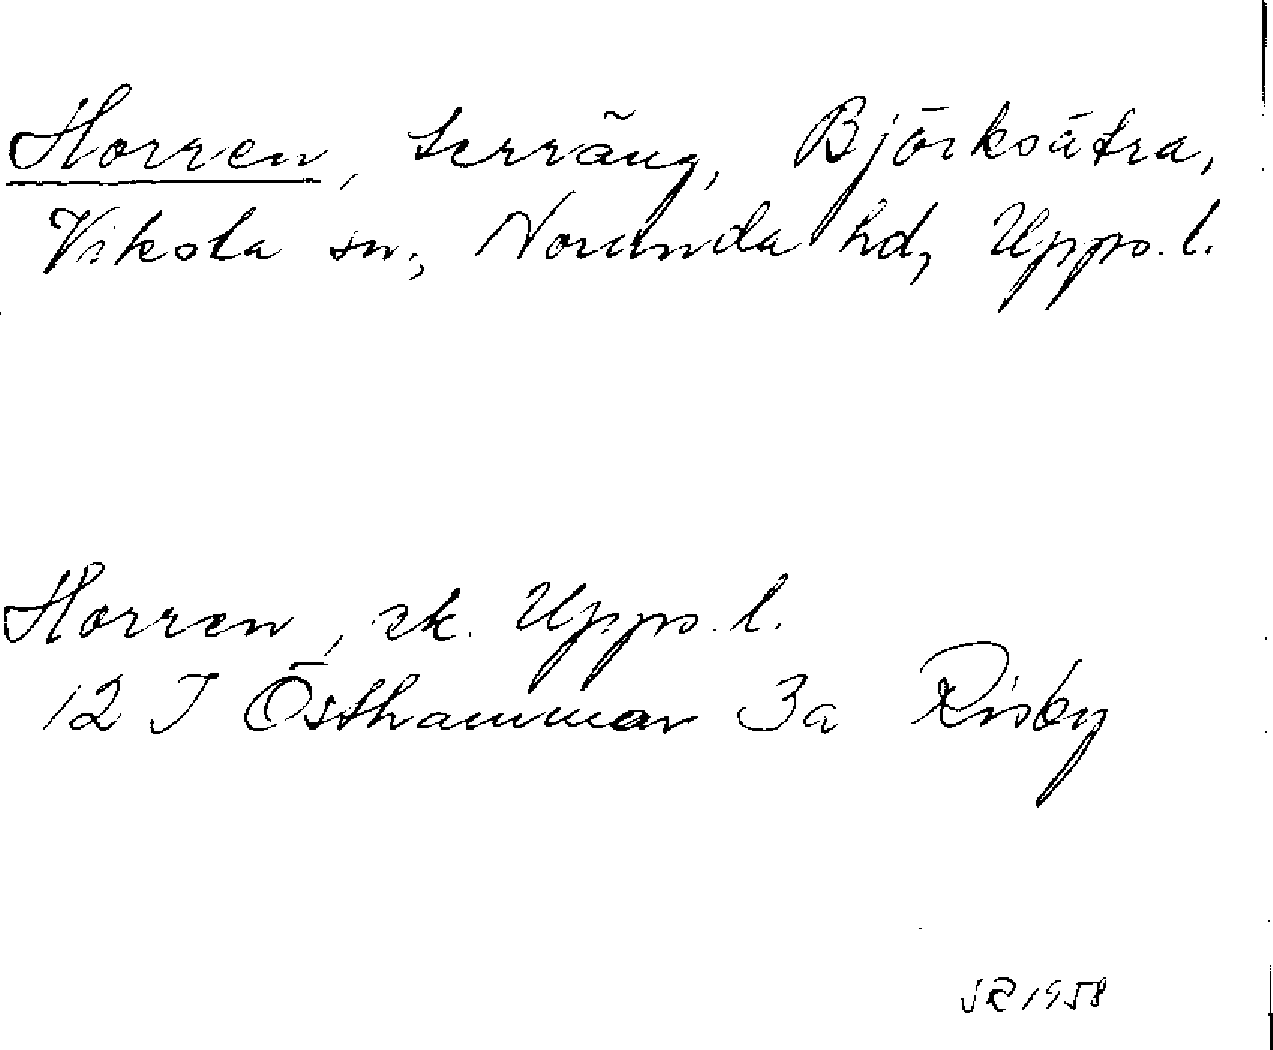 Horren, terräng, Björksätra,
Viksta sn., Norunda hd, Upps. l.
Horren, ek. Upps. l.
12 I Östhammar 3a Risby
SR 1958